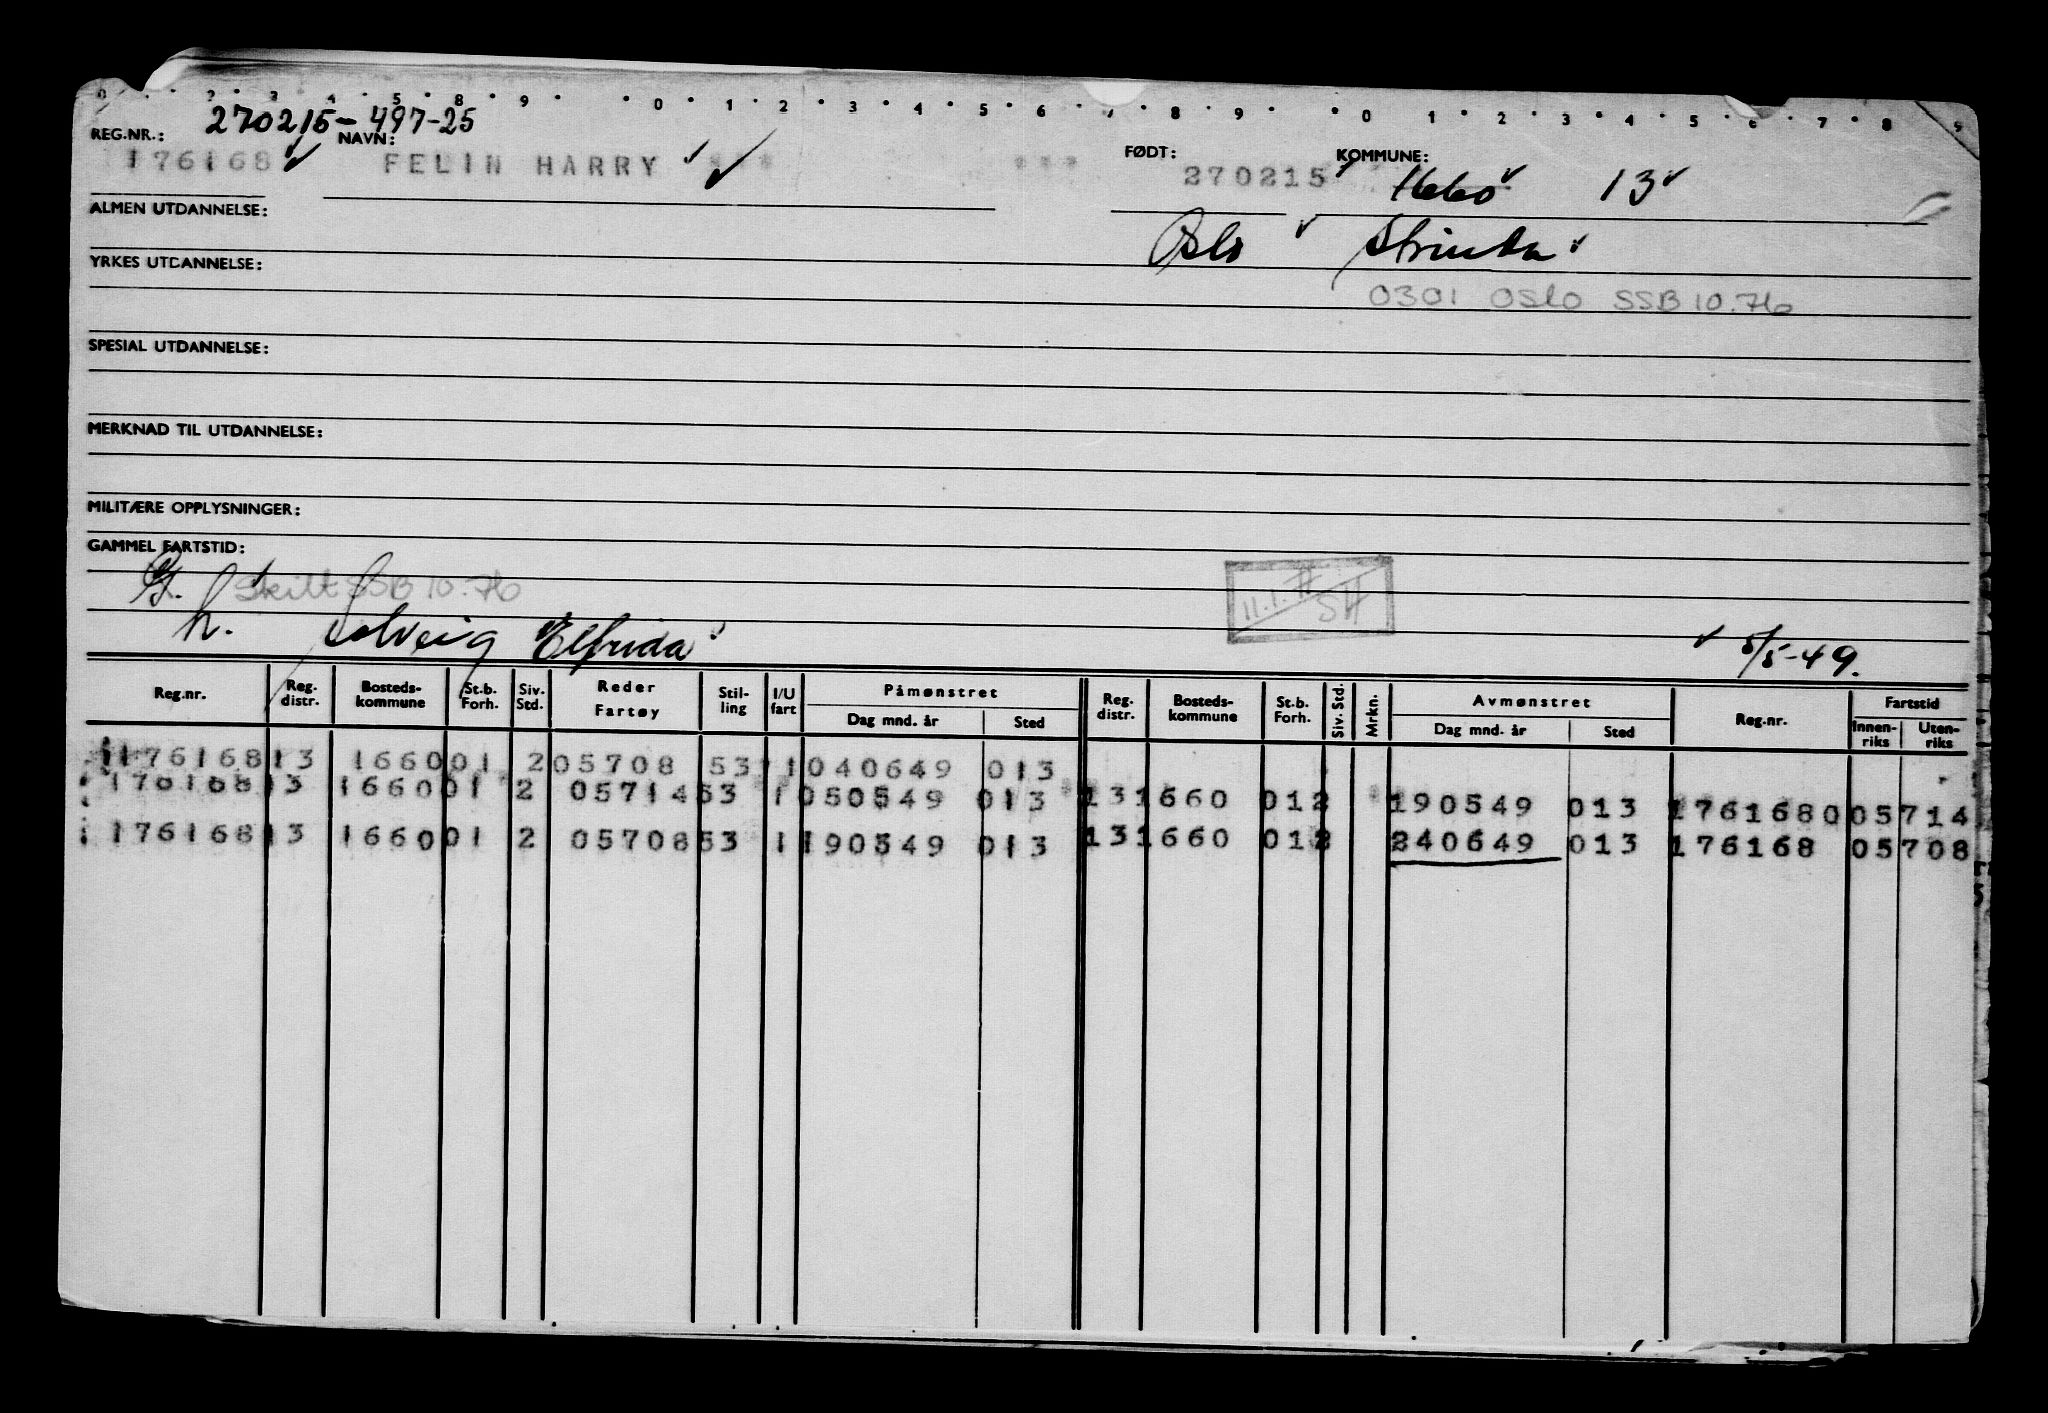 0 2 3 4 5 8 9 0 1 2 3 4 5 6 7 8 9 0 1 2 3 4 5 6 7 8 9
270215-497-25
REG.NR.: NAVN: FØDT: KOMMUNE:
176168 FELIN HARRY *** *** 270215 1660 13
ALMEN UTDANNELSE: Oslo Strinda
YRKES UTDANNELSE:
0301 Oslo SSB 10.76
SPESIAL UTDANNELSE:
MERKNAD TIL UTDANNELSE:
MILITÆRE OPPLYSNINGER:
GAMMEL FARTSTID:
G. Skilt SSB 10.76 11.1.77 SH
h. Solveig Elfrida 5/5-49.
Reg.nr. Reg. distr. Bosteds-kommune St.b. Forh. Siv. Std. Reder Fartøy Stil-ling I/U fart Påmønstret Dag mnd. år Sted Reg. distr. Bosteds-kommune St.b. Forh. Siv. Std. Mrkn. Avmønstret Dag mnd. år Sted Reg.nr. Fartstid Innen-riks Uten-riks
176168 13 1660 01 2 05708 53 1 040649 013
176168 13 1660 01 2 05714 53 1 050549 013 13 1660 01 2 190549 013 176168 0 05714
176168 13 1660 01 2 05708 53 1 190549 013 13 1660 01 2 240649 013 176168 05708